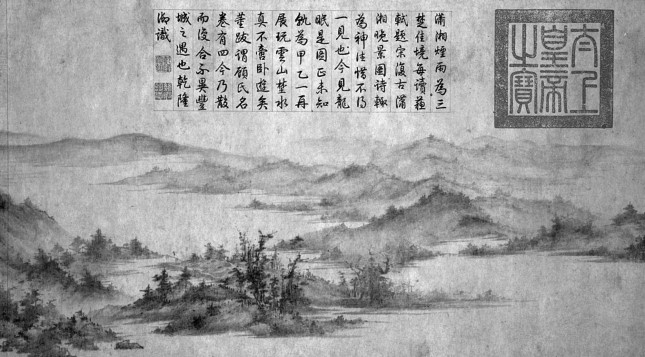 太上
皇帝
之寶
瀟湘煙雨為三
楚佳境每讀蘇
軾題宋復古瀟
湘晚景圖詩輒
為神往惜不得
一見也今見龍
眠是圖正未知
孰為甲乙一再
展玩雲山楚水
真不啻臥遊矣
董跋謂顧氏名
卷有四今乃散
而復合亦異豐
城之遇也乾隆
御識